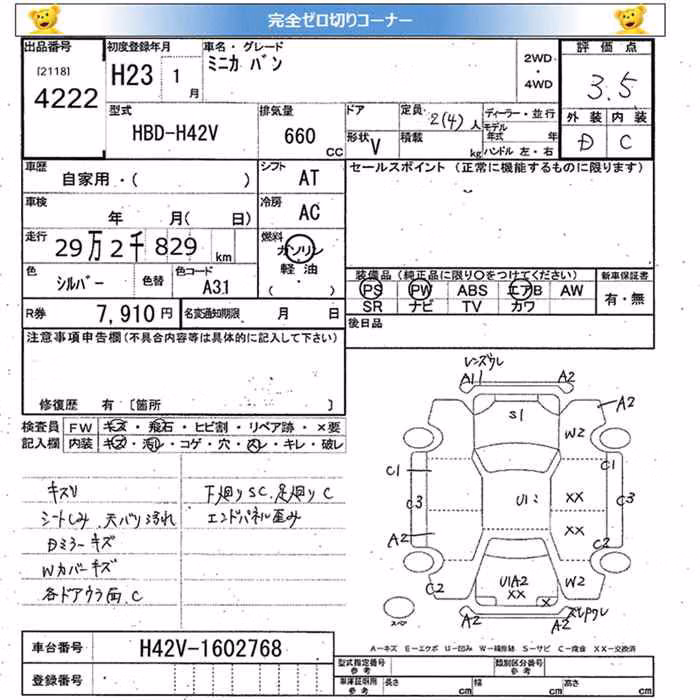 完全ゼロ切りコーナー
出品番号 [2118] 4222
初度登録年月 H23 1月
車名・グレード ミニカ バン
2WD・4WD
評価点 3.5
外装 内装
D C
型式 HBD-H42V
排気量 660 CC
ドア
形状 V
定員 2(4)人
積載 kg
ディーラー・並行
モデル年式 年
ハンドル 左・右
車歴 自家用・( )
シフト AT
セールスポイント (正常に機能するものに限ります)
車検 年 月( 日)
冷房 AC
走行 29万2千829 km
燃料 ガソリン 軽油・( )
色 シルバー 色替 色コード A31
装備品(純正品に限り○をつけてください)
PS PW ABS エアB AW
SR ナビ TV カワ
新車保証書 有・無
R券 7,910円 名変通知期限 月 日
後日品
注意事項申告欄(不具合内容等は具体的に記入して下さい)
修復歴 有〔箇所
検査員記入欄
FW キズ・飛石・ヒビ割・リペア跡・×要
内装 キズ・汚レ・コゲ・穴・スレ・キレ・破レ
キズV
シートしみ、天バリ汚れ
Dミラーキズ
Wカバーキズ
各ドアウラ面、C
下廻りSC、足廻りC
エンドパネル歪み
レンズワレ
A1 A2
A2
S1
W2
C1 C1
C3 U1 XX C3
A2 XX C2
C2 U1A2 W2
XX X
A2 A2
スペア
A−キズ E−エクボ U−凹み W−補修跡 S−サビ C−腐食 XX−交換済
車台番号 H42V-1602768
登録番号
型式指定番号 参考 類別区分番号 参考
車庫証明用 参考 長さ cm 幅 cm 高さ cm